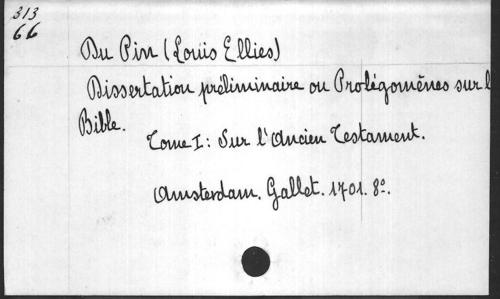 313
66
Du Pin (Louis Ellies)
Dissertation préliminaire ou Prolégomènes sur l
Bible.
Tome I: Sur l'Ancien Testament.
Amsterdam. Gallet. 1701. 8º.